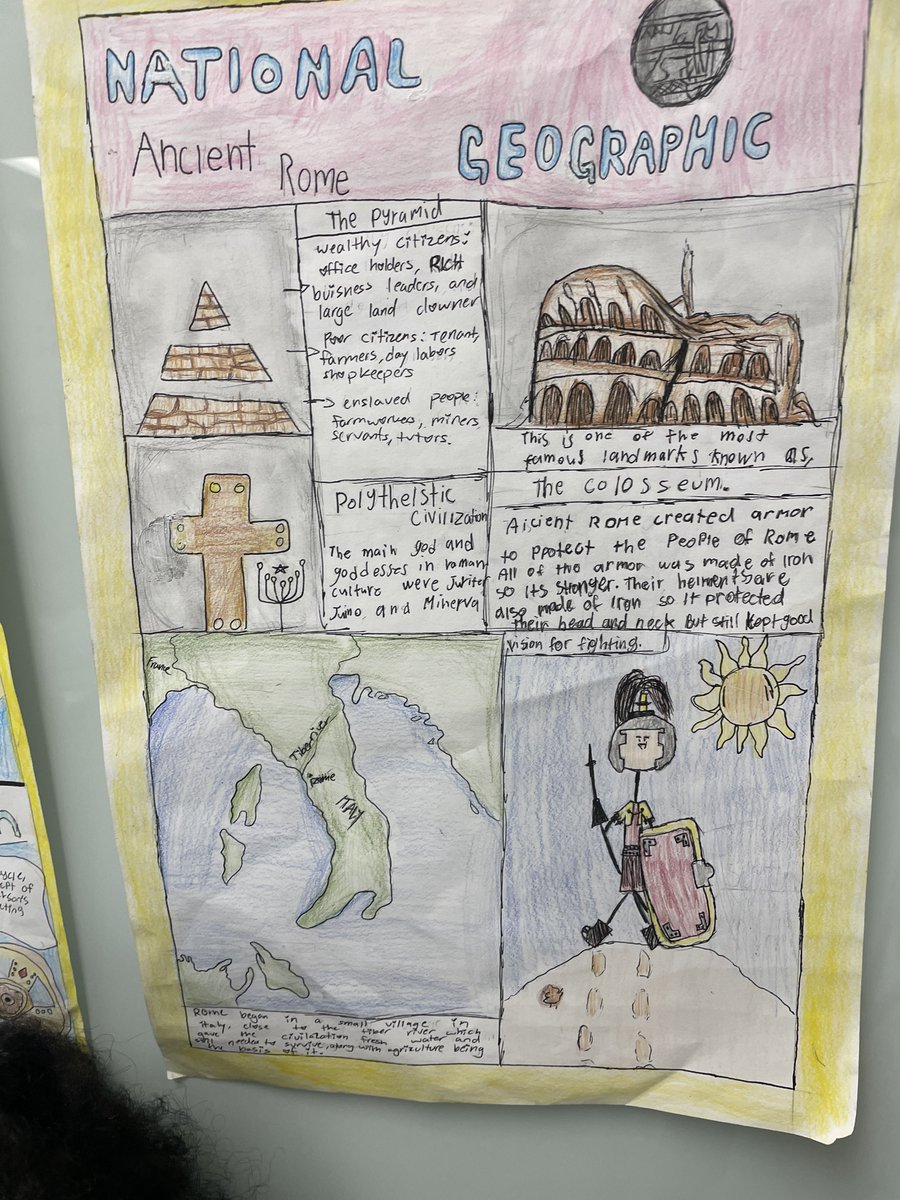 NATIONAL
GEOGRAPHIC
Ancient Rome
The Pyramid
wealthy citizens:
office holders, RICH
buisness leaders, and
large land clowner
Poor citizens: Tenant,
farmers, day labors
shopkeepers
enslaved people:
farmworkes, miners
servants, tutors.
This is one of the most
famous landmarks known as,
The Colosseum.
Polytheistic
Civilization
The main god and
goddesses in roman
culture were Jupiter
Juno, and Minerva
Aicient Rome created armor
to protect the People of Rome
All of the armor was made of Iron
so its stronger. Their helments are
also made of Iron so it protected
their head and neck But still kept good
vision for fighting.
France
Tiber river
Rome
ITALY
Rome began in a small village in
italy, close to the tiber river which
gave the civilazation fresh water and
soil needed to survive, along with agrizulture being
the basis of it.
ycle,
ept of